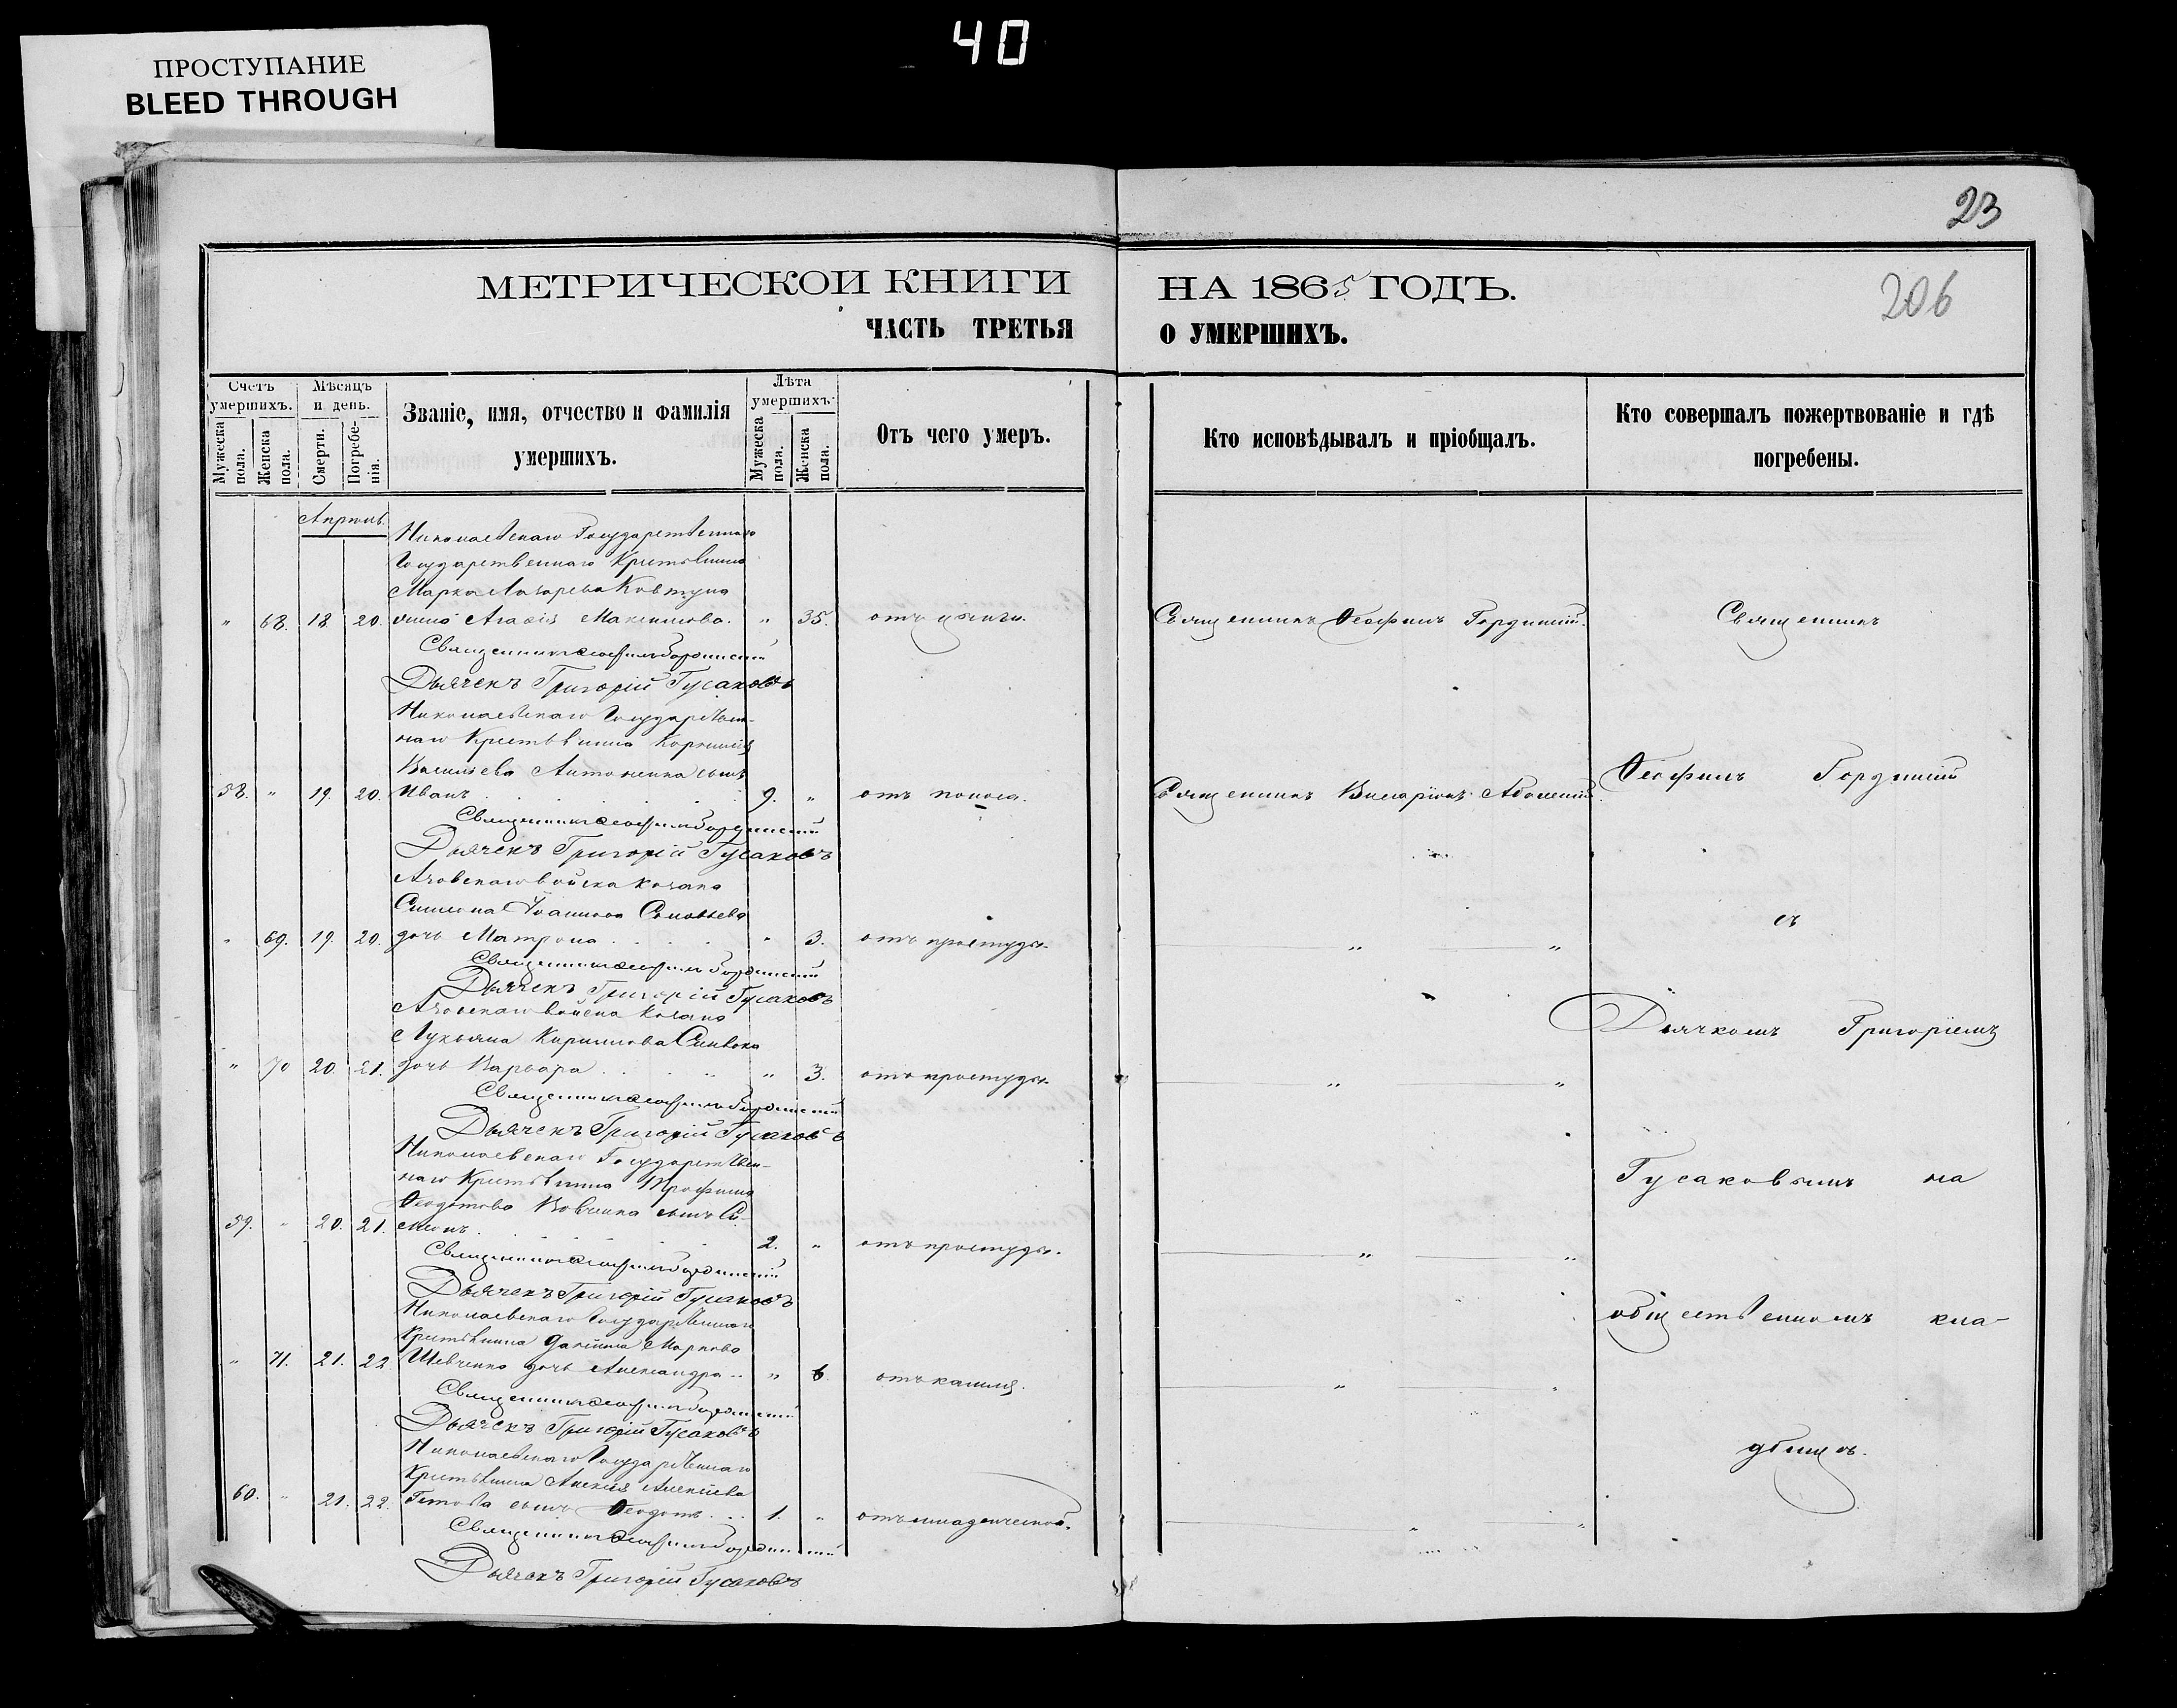 40
ПРОСТУПАНИЕ
BLEED THROUGH
23
206
МЕТРИЧЕСКОИ КНИГИ НА 1865 ГОДЪ.
ЧАСТЬ ТРЕТЬЯ О УМЕРШИХЪ.
Счетъ умершихъ.
Мужеска пола.
Женска пола.
Мѣсяцъ и день.
Смерти.
Погребенія.
Званіе, имя, отчество и фамилія
умершихъ.
Лѣта умершихъ.
Мужеска пола.
Женска пола.
Отъ чего умеръ.
Кто исповѣдывалъ и пріобщалъ.
Кто совершалъ пожертвованіе и гдѣ
погребены.
Апрель.
Николаевскаго Государственнаго
Государственнаго Крестьянина
Марка Лазарева Ковтуна
" 68. 18 20. жена Агафія Максимова. " 35. отъ цынги. Священникъ Ѳеофилъ Гординскій. Священникъ
Священникъ Ѳеофилъ Гординскій
Дьячекъ Григорій Гусаковъ
Николаевскаго Государствен-
наго Крестьянина Корнилія
Васильева Антоненка сынъ
58. " 19. 20. Иванъ 9. " отъ поноса. Священникъ Виссаріонъ
Ѳеофилъ Гординскій
Священникъ Ѳеофилъ Гординскій
Дьячекъ Григорій Гусаковъ
Азовскаго войска козака
Симеона Іоаннова Соловьева
съ
" 69. 19. 20. дочь Матрона " 3. отъ простуды. " "
Священникъ Ѳеофилъ Гординскій
Дьячекъ Григорій Гусаковъ
Азовскаго войска козака
Дьячкомъ Григоріемъ
Лукьяна Кириллова
" 70 20. 21. дочь Варвара " 3. отъ простуды. " "
Священникъ Ѳеофилъ Гординскій
Дьячекъ Григорій Гусаковъ
Николаевскаго Государствен-
наго Крестьянина Трофима
Гусаковымъ на
Ѳеодотова сынъ Си-
59. " 20. 21. меонъ. 2. " отъ простуды. " "
Священникъ Ѳеофилъ Гординскій
Дьячекъ Григорій Гусаковъ
Николаевскаго Государственнаго
общественномъ кла-
Крестьянина Даніила Маркова
" 71. 21. 22 Шевченко дочь Александра " 6 отъ кашля. " "
Священникъ Ѳеофилъ Гординскій
Дьячекъ Григорій Гусаковъ
Николаевскаго Государственнаго
дбищѣ.
Крестьянина Алексія Алексіева
60. " 21. 22. сынъ Ѳеодотъ 1. " отъ младенческой. " "
Священникъ Ѳеофилъ Гординскій
Дьячекъ Григорій Гусаковъ